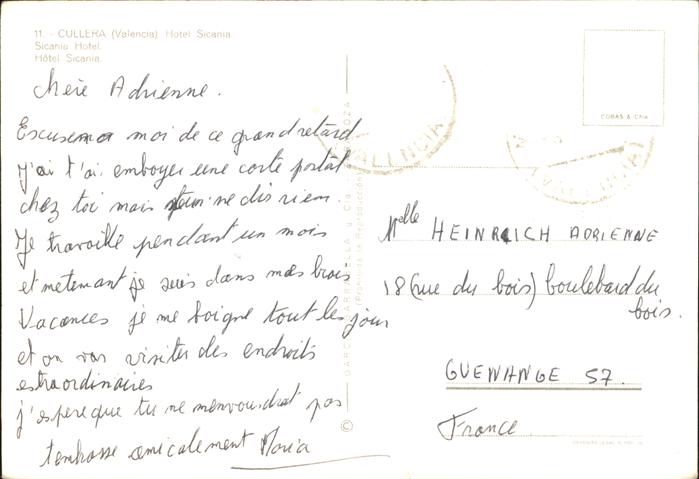 11. - CULLERA (Valencia) Hotel Sicania.
Sicania Hotel.
Hôtel Sicania.
chère Adrienne.
Escusema moi de ce grand retard
j'ai t'ai emboyer une carte postal
chez toi mais tu ne dis rien.
Je travaille pendant un mois
et metenant je suis dans mes
Vacances je me baigne tout les jour
et on vas visiter des endroits
estraordinaires
j'espere que tu ne menvoudrat pas
tembrasse amicalement Maria
VALENCIA
(VALENCIA)
COBAS & CRIA
(Prohibida la Reproducción)
Melle HEINRICH ADRIENNE
18 (rue du bois) boulebard du
bois.
GUENANGE 57.
France